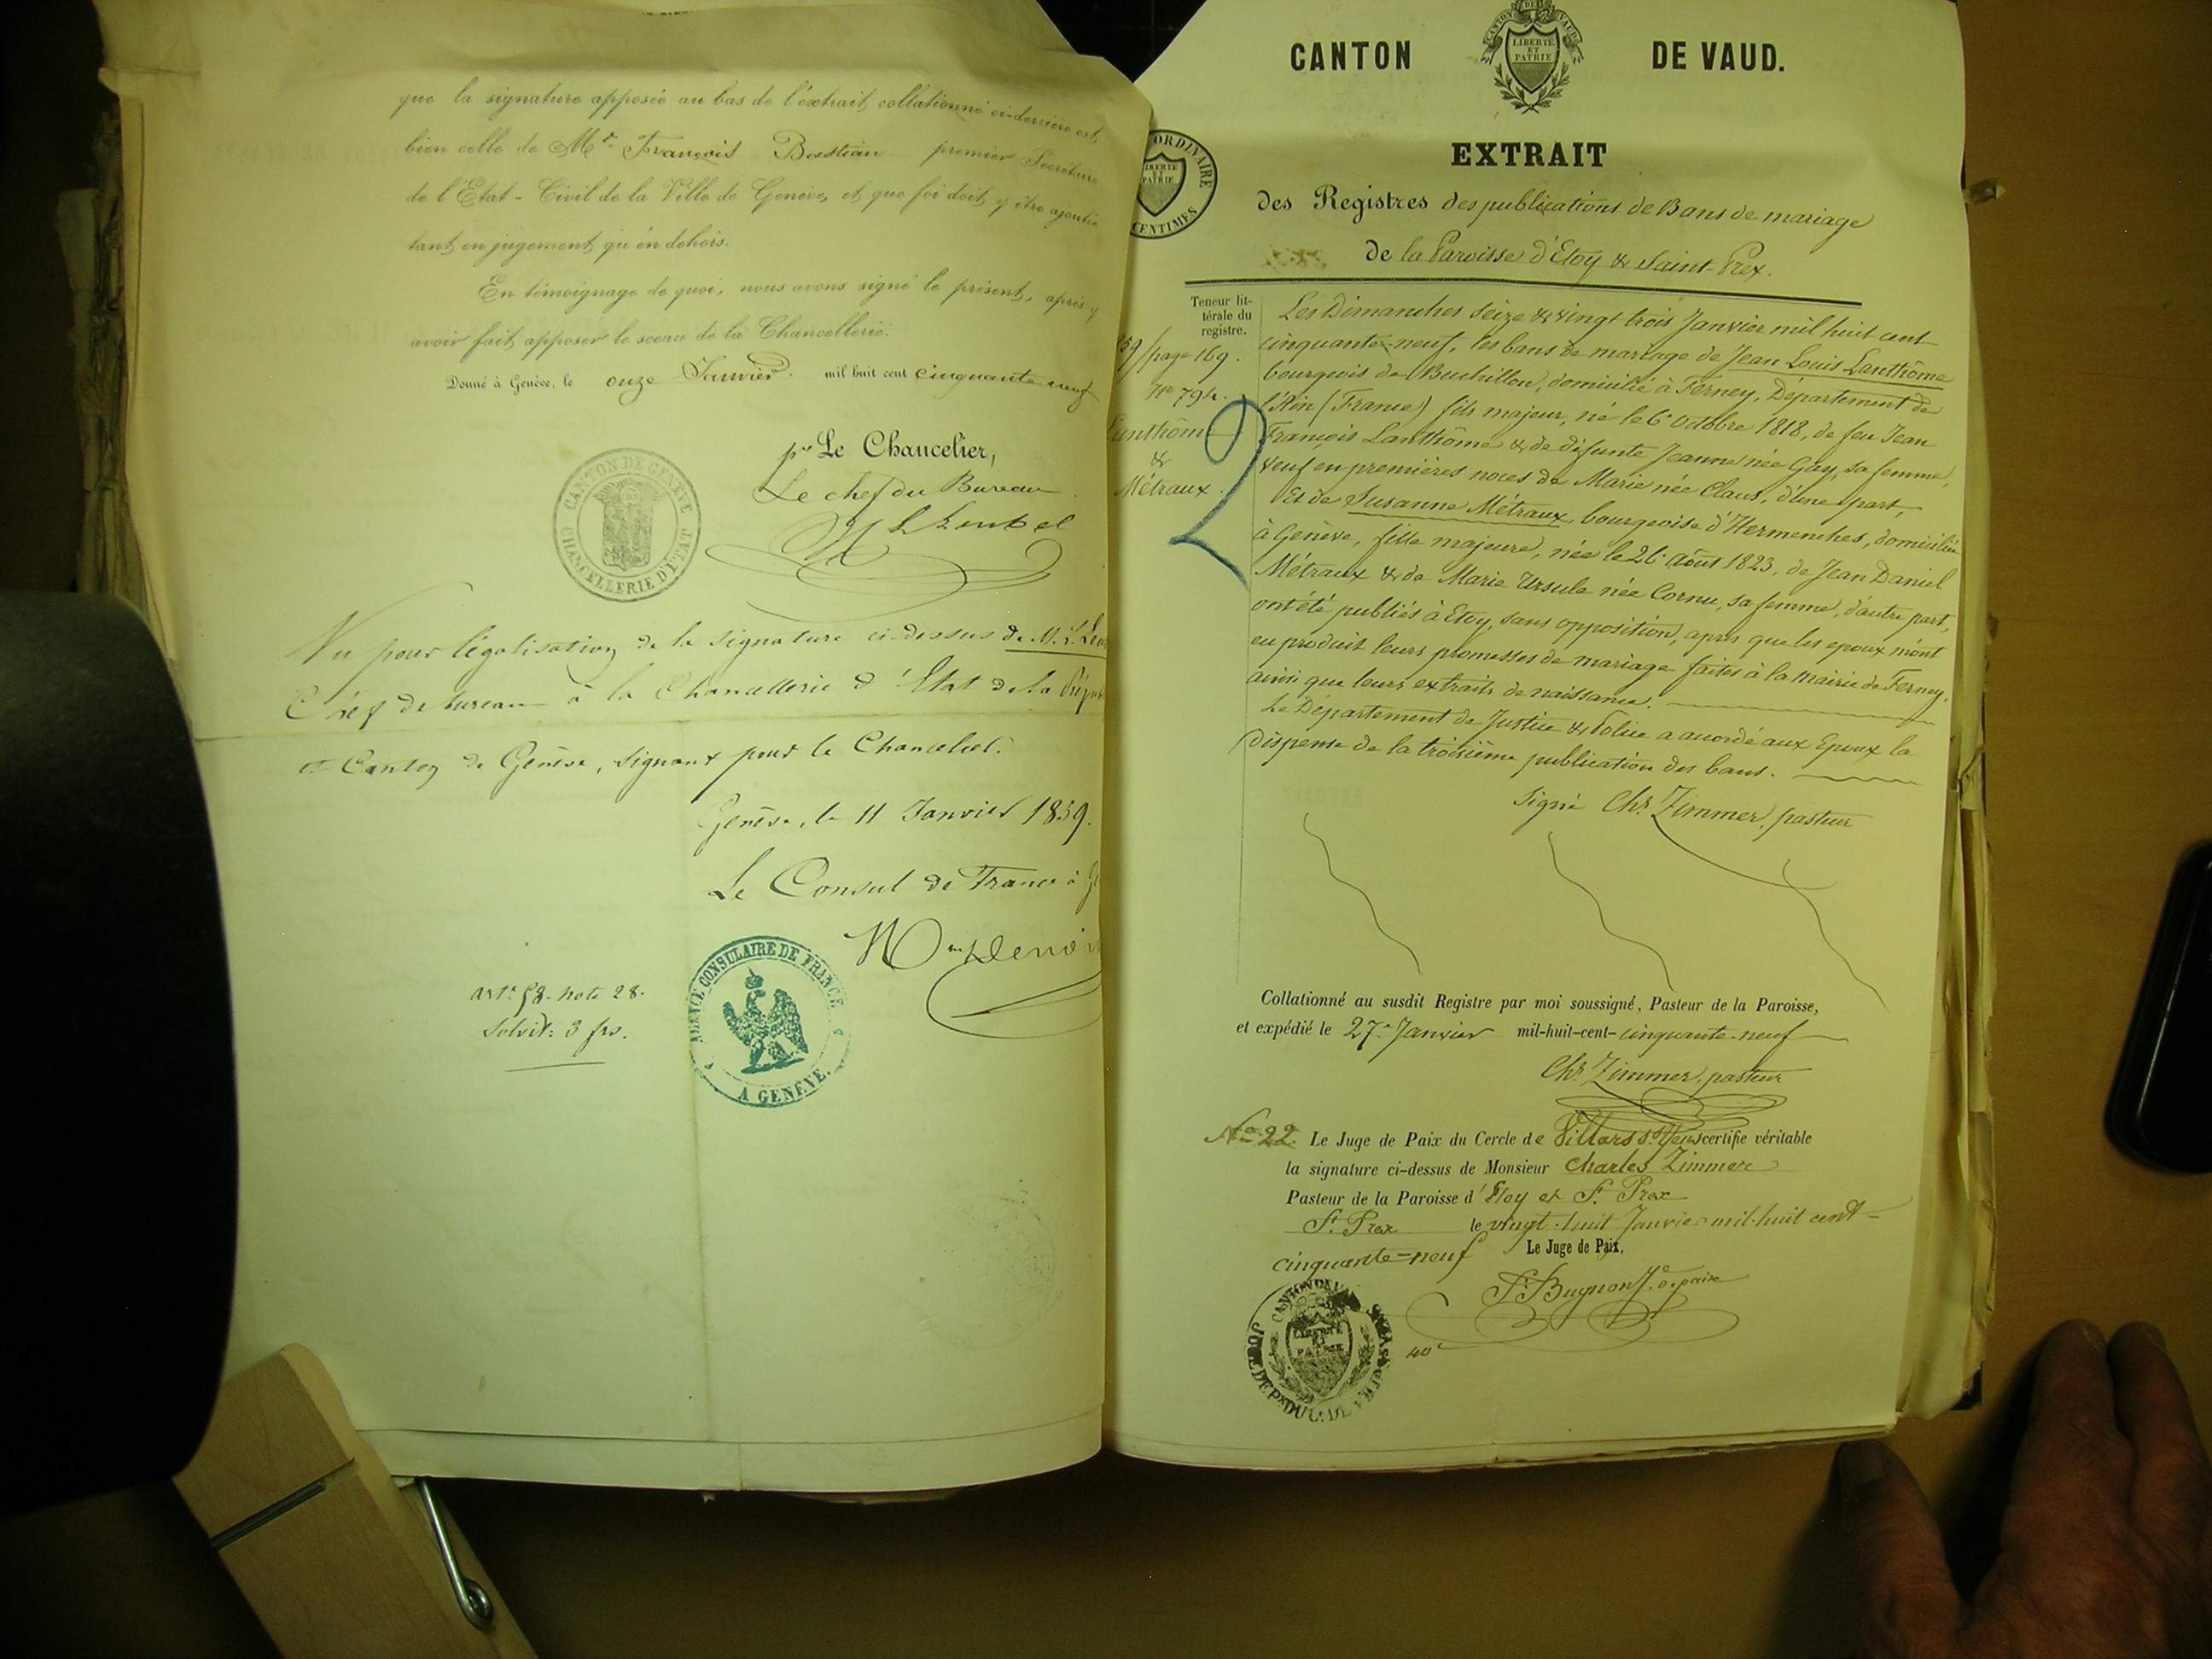 que la signature apposée au bas de l'extrait collationné ci-derrière est
bien celle de Mr. François Bastian premier Secrétaire
de l'Etat-Civil de la Ville de Genève, et que foi doit y être ajoutée
tant en jugement qu'en dehors.
En témoignage de quoi, nous avons signé le présent, après y
avoir fait apposer le sceau de la Chancellerie.
Donné à Genève, le onze Janvier mil huit cent cinquante neuf
pr Le Chancelier,
Le chef du Bureau
CANTON DE GENEVE
CHANCELLERIE D'ETAT
Vu pour légalisation de la signature ci-dessus de M. L.
Chef de bureau à la Chancellerie d'Etat de la
et Canton de Genève, signant pour le Chancelier.
Genève, le 11 Janvier 1859.
Le Consul de France à
AGENCE CONSULAIRE DE FRANCE
A GENÈVE.
Art. 58. Note 28.
Solvit: 3 frs.
CANTON DE VAUD.
CANTON DE VAUD
LIBERTÉ
ET
PATRIE
EXTRAIT
des Registres des publications de Bans de mariage
de la Paroisse d'Etoy & Saint-Prex.
ORDINAIRE
LIBERTE
ET
PATRIE
CENTIMES
Teneur lit-
térale du
registre.
59/page 169.
No 794.
Lanthôme
&
Métraux.
2
Les Dimanches seize & vingt trois Janvier mil huit cent
cinquante-neuf, les bans de mariage de Jean Louis Lanthôme
bourgeois de Buchillon, domicilié à Ferney, Département de
l'Ain (France) fils majeur, né le 6e Octobre 1818, de feu Jean
François Lanthôme & de défunte Jeanne née Gay, sa femme,
veuf en premières noces de Marie née Claus, d'une part,
Et de Susanne Métraux, bourgeoise d'Hermenches, domiciliée
à Genève, fille majeure, née le 26e Août 1823, de Jean Daniel
Métraux & de Marie Ursule née Cornu, sa femme, d'autre part,
ont été publiés à Etoy, sans opposition, après que les epoux m'ont
eu produit leurs promesses de mariage faites à la Mairie de Ferney,
ainsi que leurs extraits de naissance.
Le Département de Justice & Police a accordé aux Epoux la
dispense de la troisième publication des bans.
Signé Chs Zimmer, pasteur
Collationné au susdit Registre par moi soussigné, Pasteur de la Paroisse,
et expédié le 27e Janvier mil-huit-cent-cinquante-neuf
Chs Zimmer, pasteur
No 22. Le Juge de Paix du Cercle de Villars s. Yens certifie véritable
la signature ci-dessus de Monsieur Charles Zimmer
Pasteur de la Paroisse d'Etoy et St. Prex
St. Prex le vingt-huit Janvier mil-huit cent-
cinquante=neuf Le Juge de Paix,
Bugnon J. d. paix
40c
CANTON DE VAUD
LIBERTÉ
ET
PATRIE